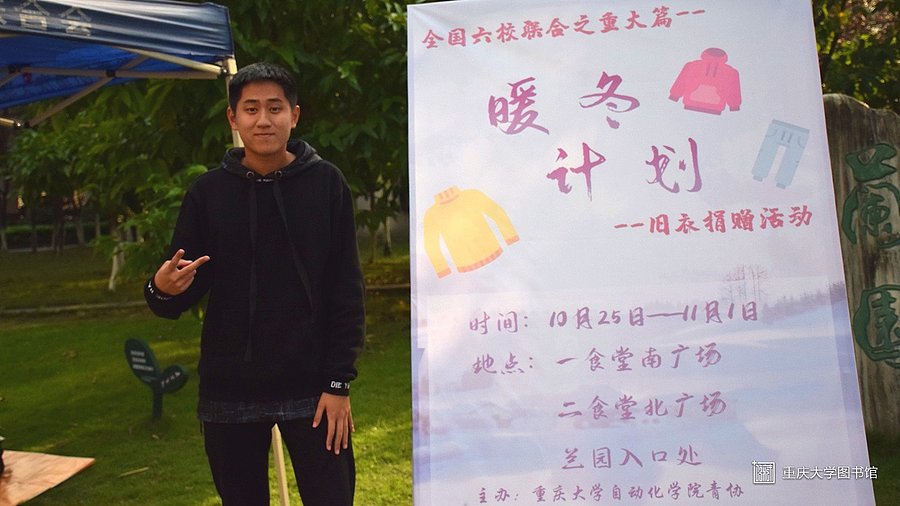 全国六校联合之重大篇--
暖冬
计划
--旧衣捐赠活动
时间：10月25日——11月1日
地点：一食堂南广场
二食堂北广场
兰园入口处
主办：重庆大学自动化学院青协
兰园
DIE
重庆大学图书馆